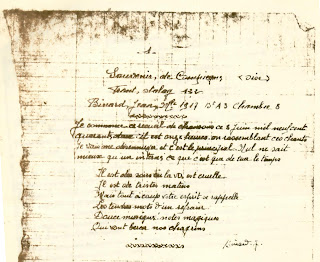 - 1 -
Souvenir, de Compiègne (Oise)
Front, stalag 122
Binard, Jean, Nº 1917 B A3 Chambre 8
Je commence ce recueil de chansons ce 8 juin mil neuf cent
quarante deux. il est onze heures, en rassemblant ces chants
Je vais me et c'est le principal. Nul ne sait
mieux qu'un interné ce que c'est que de tuer le temps
Il est des soirs où la vie est cruelle
Il est de tristes matins
Mais tout à coup votre esprit se rappelle
Les tendres mots d'un refrain
Douce musique notes magiques
Qui vont bercer nos chagrins
Binard. J.